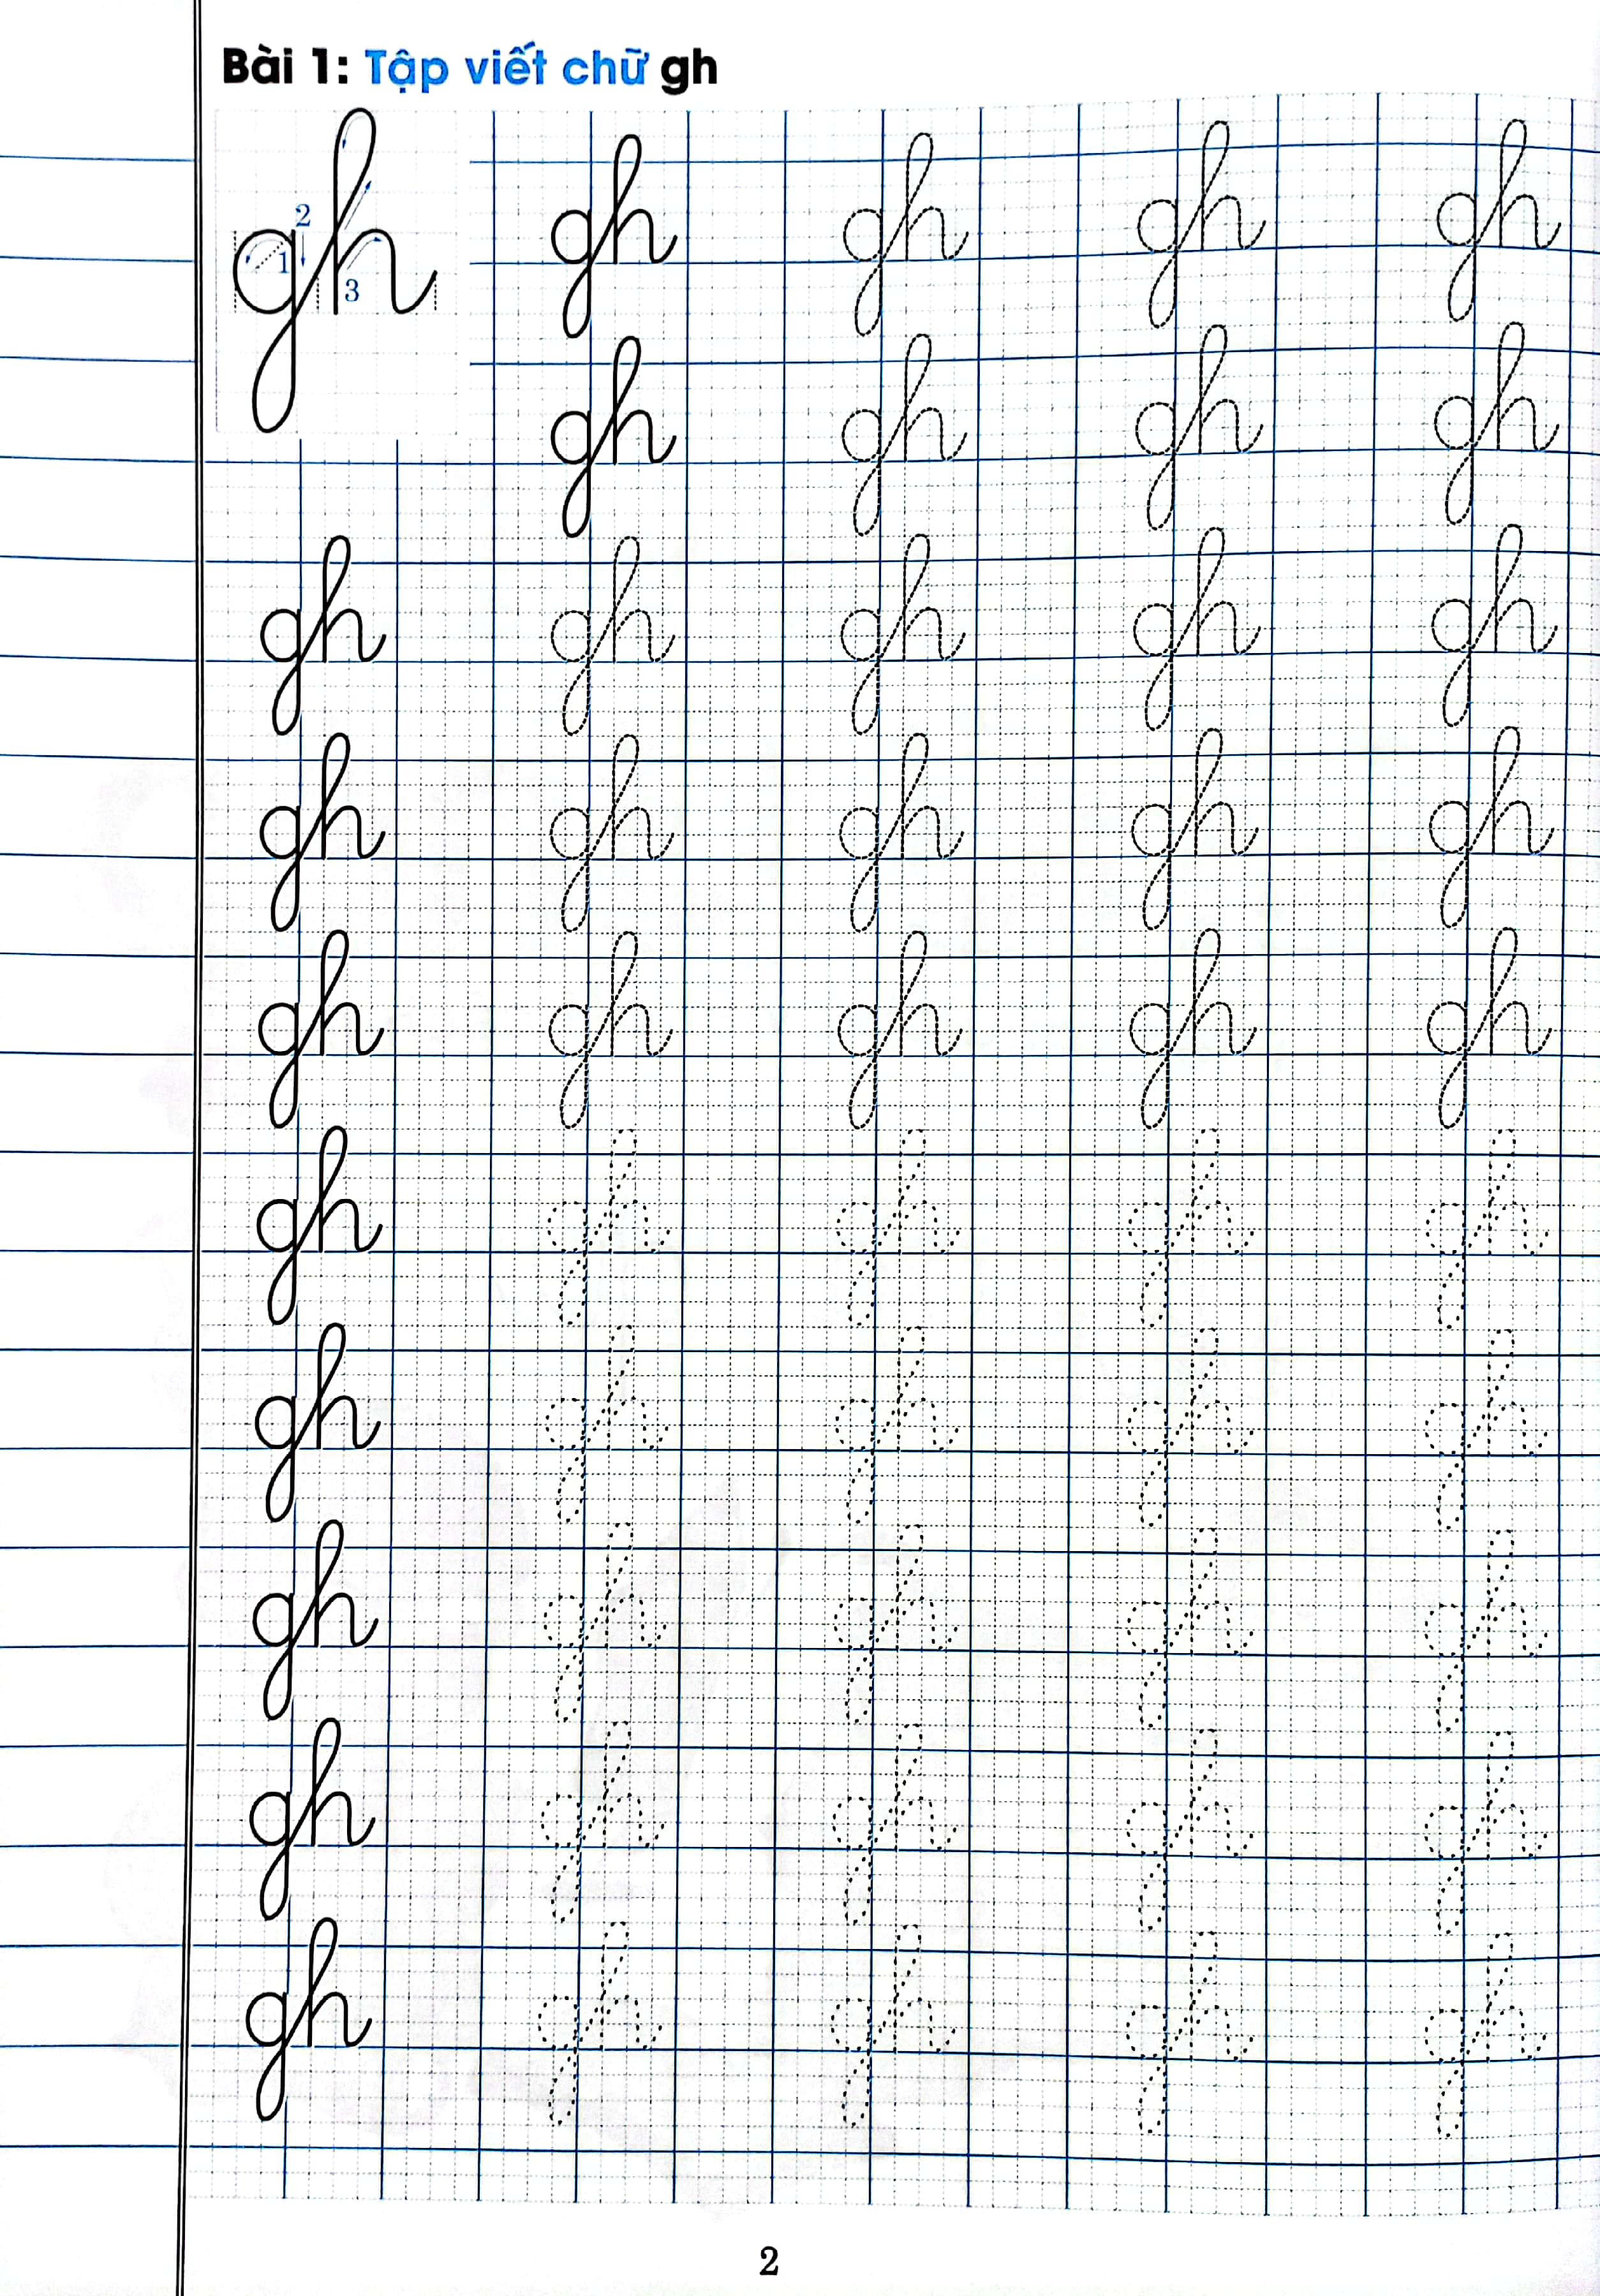 Bài 1: Tập viết chữ gh
gh 1 2 3 gh gh gh gh
gh gh gh gh
gh gh gh gh gh
gh gh gh gh gh
gh gh gh gh gh
gh gh gh gh gh
gh gh gh gh gh
gh gh gh gh gh
gh gh gh gh gh
gh gh gh gh gh
2